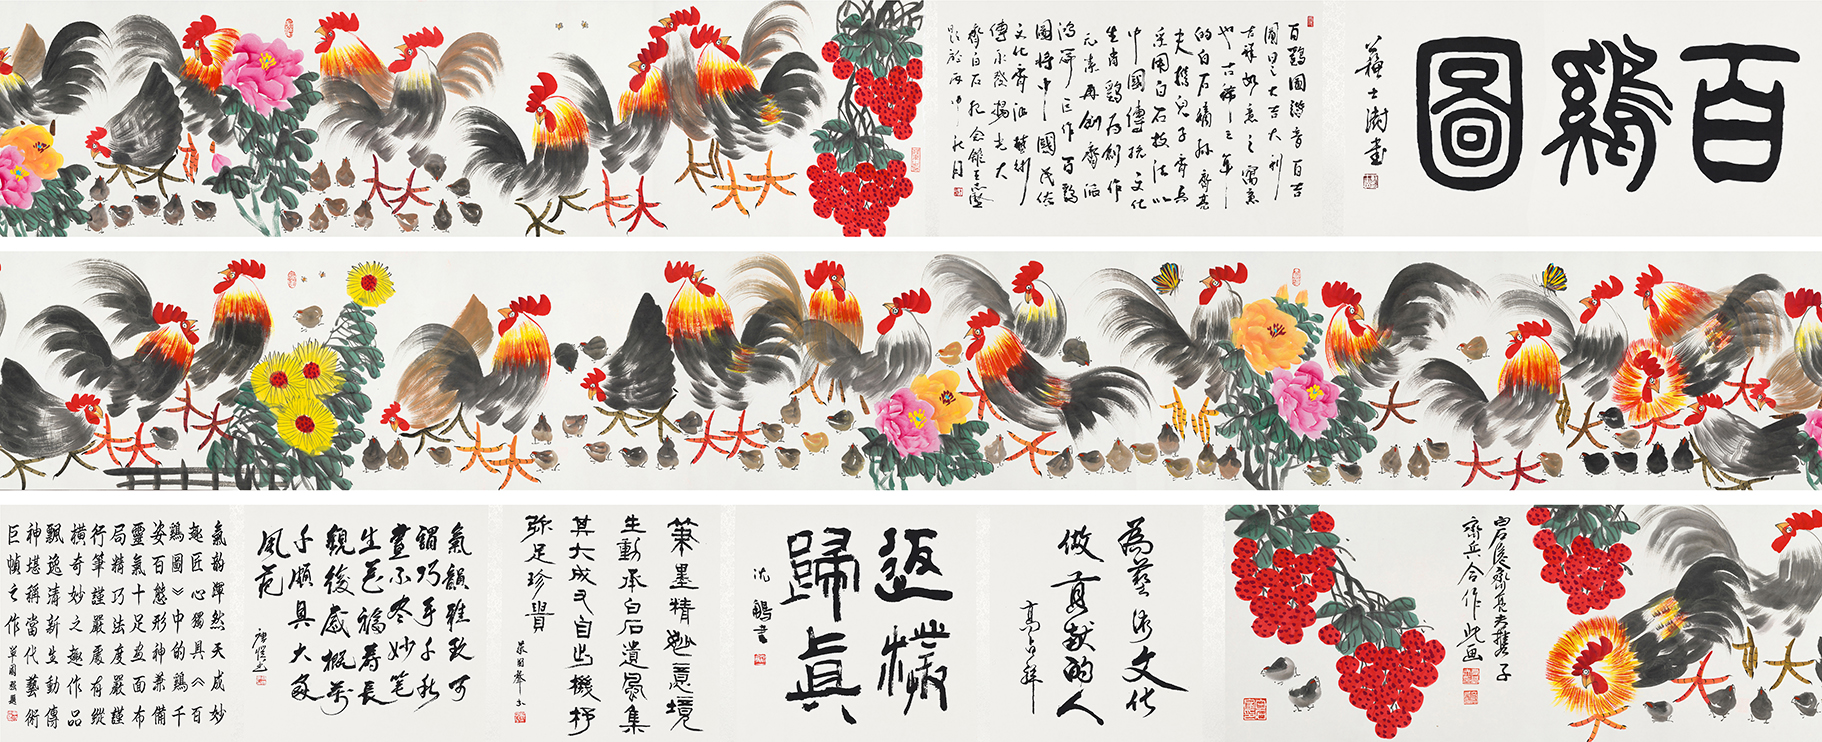 百鷄圖
蘇士澍書
百鷄圖諧音百吉
圖曰之大吉大利
吉祥如意之寓意
也古稀之年
的白石嫡孫齊亮
夫攜兒子齊兵
采用白石技法以
中國傳統文化
生肖鷄为創作
元素再創齊派
鴻篇巨作百鷄
圖將中國民俗
文化齊派藝術
傳承發揚光大
齊白石紀念館王志
跋於丙申秋月
齊兵合作此画
為藝術文化
做貢献的人
高占祥
返樸
歸真
沈鵬書
筆墨精妙意境
生動承白石遺風集
其大成又自出機杼
弥足珍貴
氣韻雅致可
謂巧手千秋
畫不尽妙笔
生花福壽長
觀後感概萬
千頗具大家
風范
氣韵渾然天成妙
趣匠心獨具《百
鷄圖》中的鷄千
姿百態形神兼備
靈氣十足画面布
局精巧法度嚴謹
行筆謹嚴處有縱
橫奇妙之趣作品
飄逸清新生動傳
神堪稱當代藝術
巨幀之作 單國强題